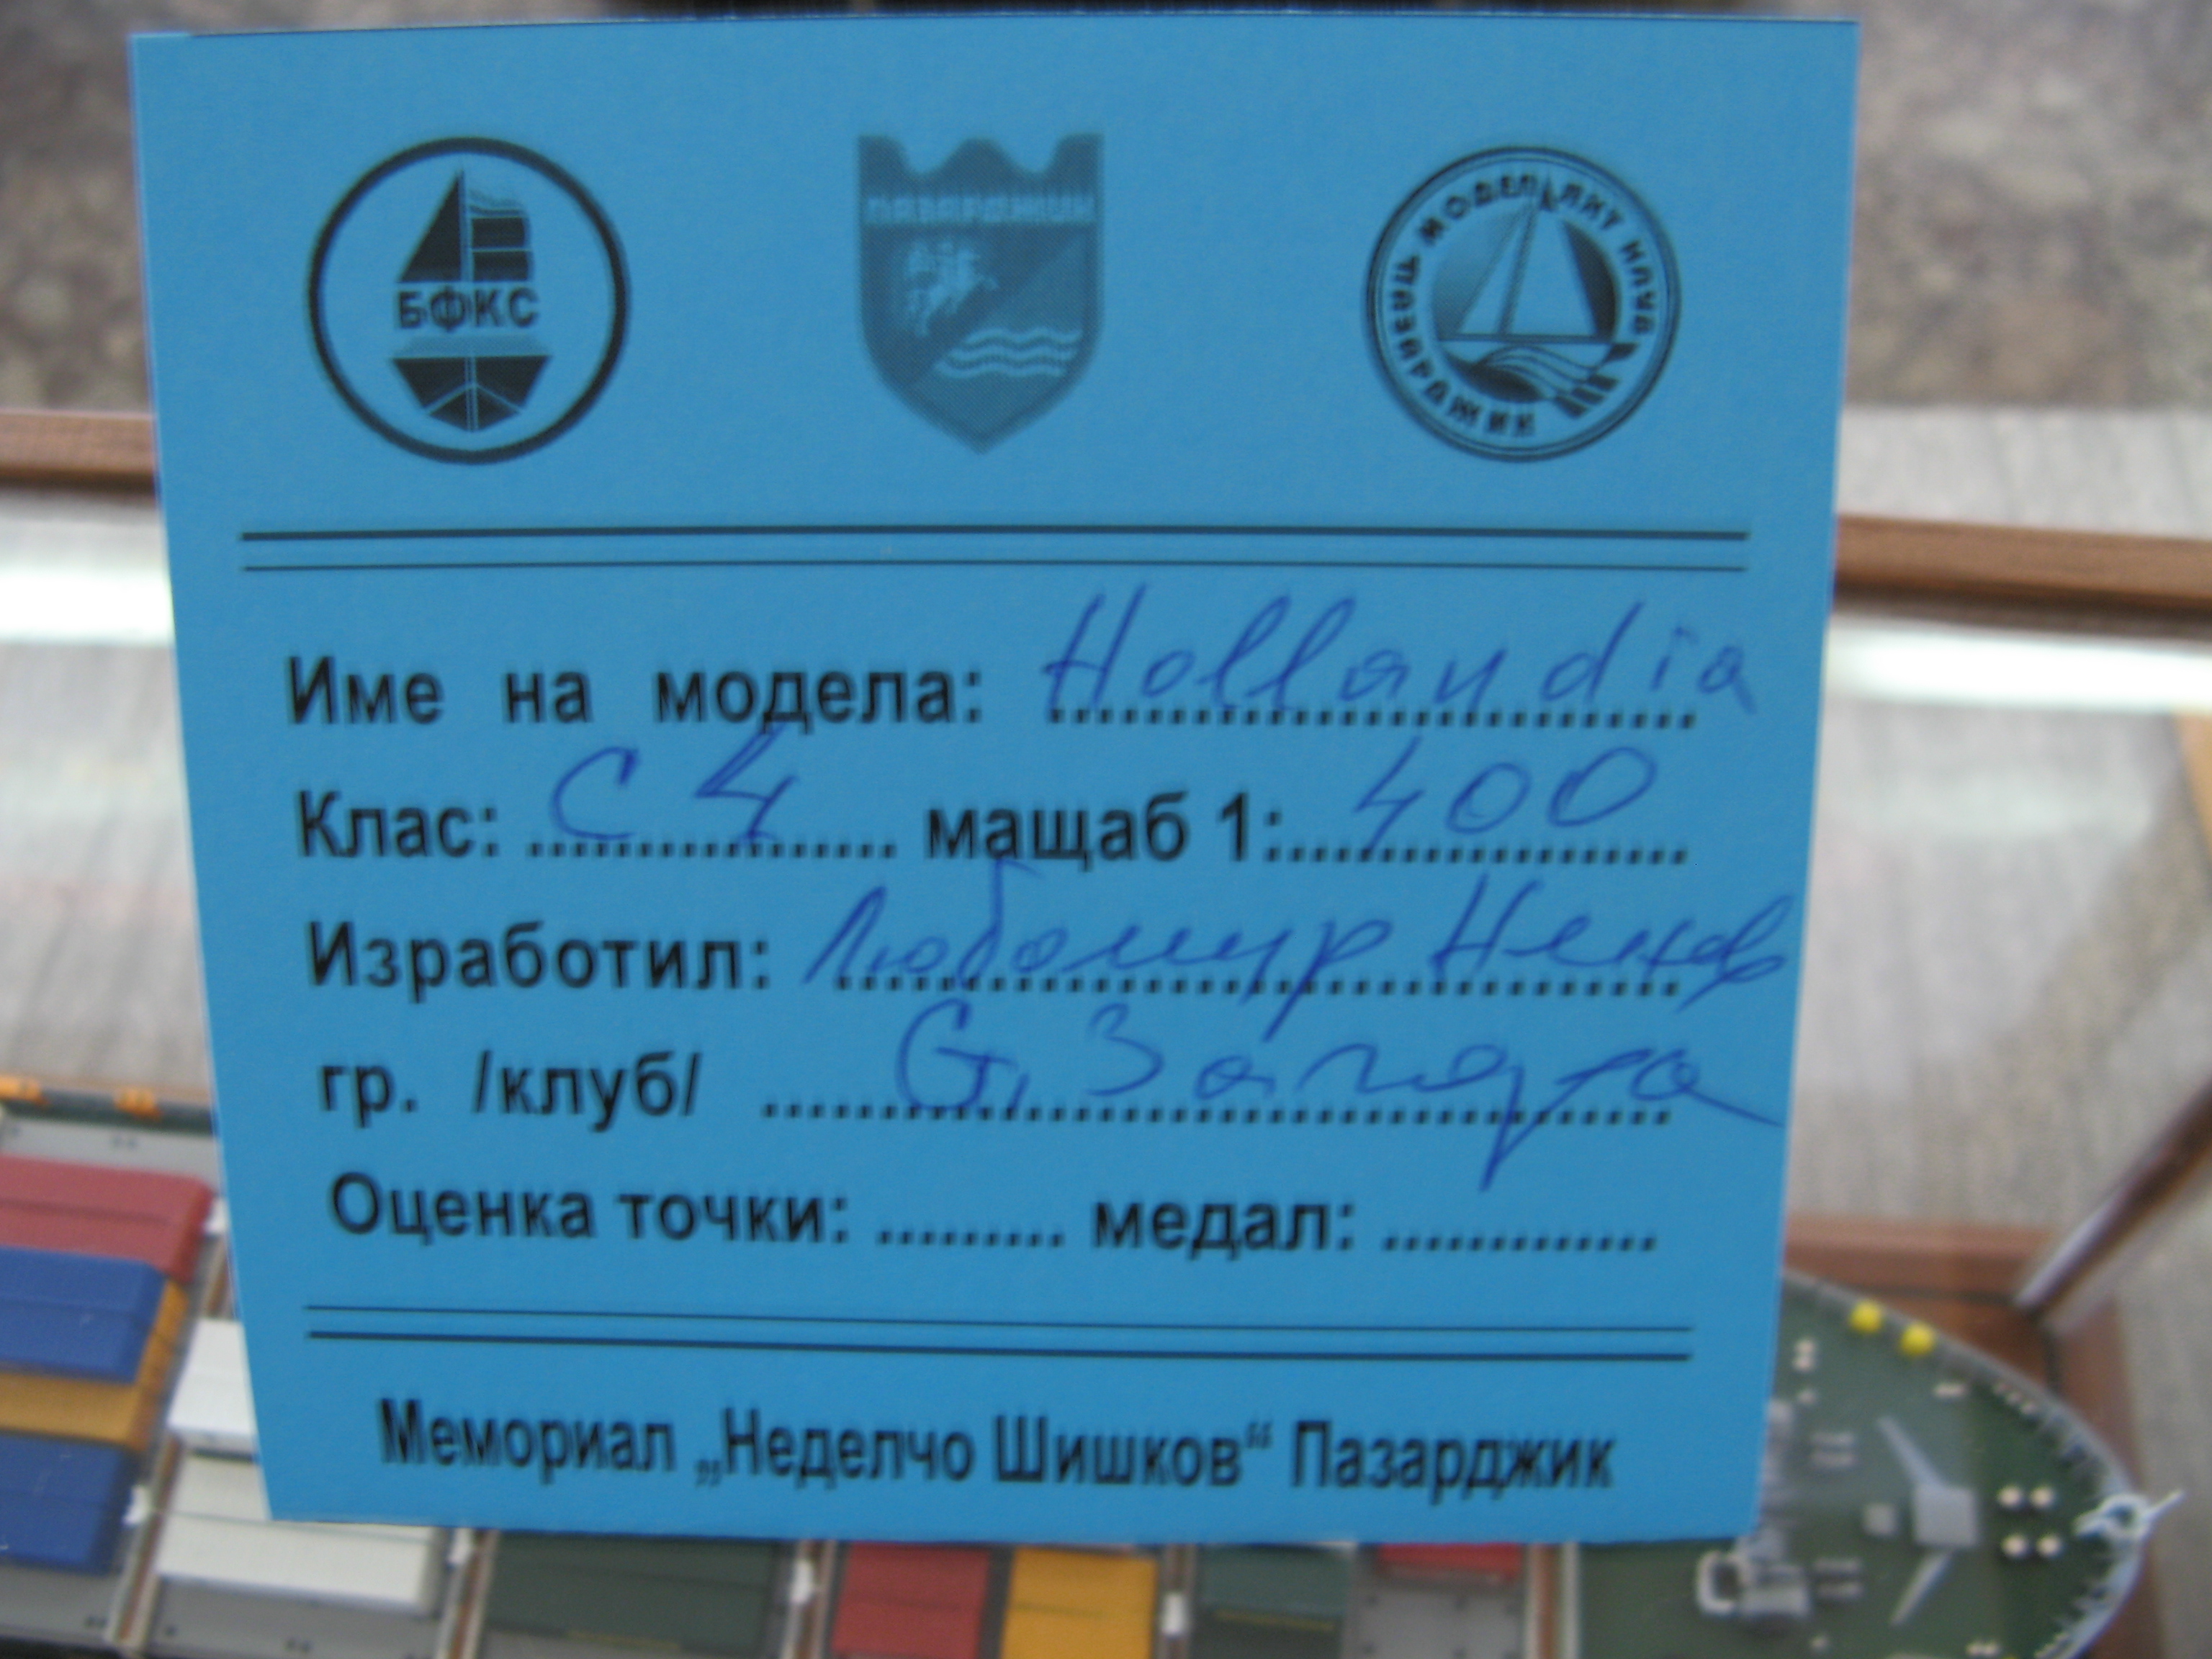 БФКС
ПАЗАРДЖИК
МОДЕЛ ЯХТ КЛУБ ПАЗАРДЖИК
Име на модела: Hollandia
Клас: C4 мащаб 1: 400
Изработил: Любомир Ненов
гр. /клуб/ Ст. Загора
Оценка точки: ......... медал: .............
Мемориал „Неделчо Шишков“ Пазарджик